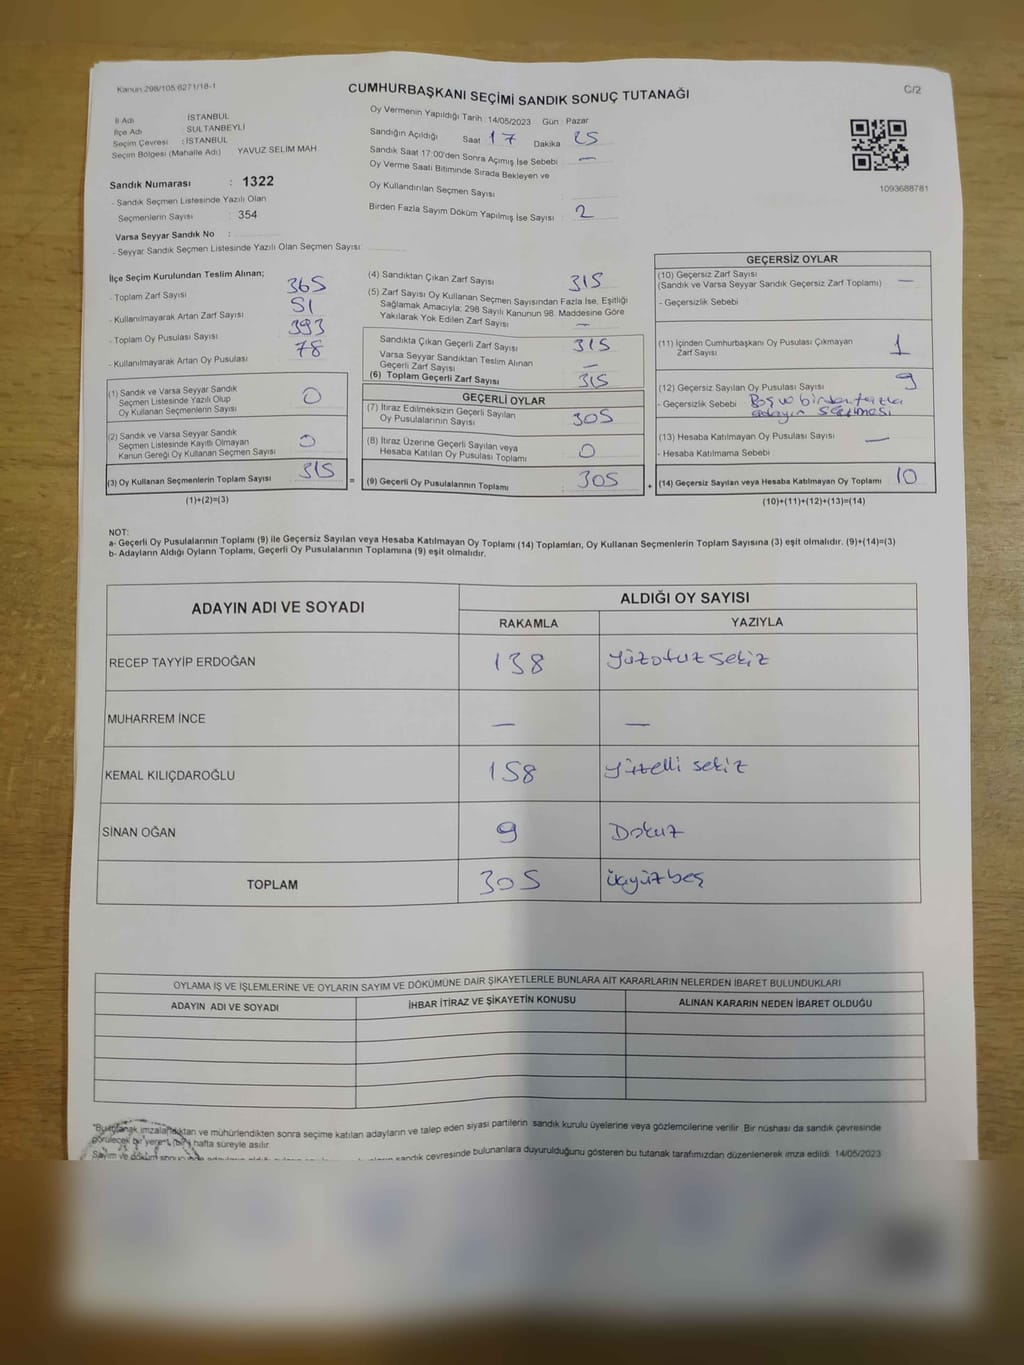 Kanun 298/105,6271/18-1
CUMHURBAŞKANI SEÇİMİ SANDIK SONUÇ TUTANAĞI
C/2
İl Adı : İSTANBUL
İlçe Adı : SULTANBEYLİ
Seçim Çevresi : İSTANBUL
Seçim Bölgesi (Mahalle Adı) YAVUZ SELİM MAH.
Sandık Numarası : 1322
- Sandık Seçmen Listesinde Yazılı Olan
Seçmenlerin Sayısı : 354
Varsa Seyyar Sandık No :
- Seyyar Sandık Seçmen Listesinde Yazılı Olan Seçmen Sayısı:
Oy Vermenin Yapıldığı Tarih : 14/05/2023 Gün : Pazar
Sandığın Açıldığı Saat 17 Dakika 25
Sandık Saat 17:00'den Sonra Açımış İse Sebebi —
Oy Verme Saati Bitiminde Sırada Bekleyen ve
Oy Kullandırılan Seçmen Sayısı
Birden Fazla Sayım Döküm Yapılmış İse Sayısı 2
1093688781
İlçe Seçim Kurulundan Teslim Alınan;
- Toplam Zarf Sayısı 365
- Kullanılmayarak Artan Zarf Sayısı 51
- Toplam Oy Pusulası Sayısı 393
- Kullanılmayarak Artan Oy Pusulası 78
(1) Sandık ve Varsa Seyyar Sandık
Seçmen Listesinde Yazılı Olup
Oy Kullanan Seçmenlerin Sayısı 0
(2) Sandık ve Varsa Seyyar Sandık
Seçmen Listesinde Kayıtlı Olmayan
Kanun Gereği Oy Kullanan Seçmen Sayısı 0
(3) Oy Kullanan Seçmenlerin Toplam Sayısı 315 =
(1)+(2)=(3)
(4) Sandıktan Çıkan Zarf Sayısı 315
(5) Zarf Sayısı Oy Kullanan Seçmen Sayısından Fazla İse, Eşitliği
Sağlamak Amacıyla; 298 Sayılı Kanunun 98. Maddesine Göre
Yakılarak Yok Edilen Zarf Sayısı —
Sandıkta Çıkan Geçerli Zarf Sayısı 315
Varsa Seyyar Sandıktan Teslim Alınan
Geçerli Zarf Sayısı —
(6) Toplam Geçerli Zarf Sayısı 315
GEÇERLİ OYLAR
(7) İtiraz Edilmeksizin Geçerli Sayılan
Oy Pusulalarının Sayısı 305
(8) İtiraz Üzerine Geçerli Sayılan veya
Hesaba Katılan Oy Pusulası Toplamı 0
(9) Geçerli Oy Pusulalarının Toplamı 305 +
GEÇERSİZ OYLAR
(10) Geçersiz Zarf Sayısı
(Sandık ve Varsa Seyyar Sandık Geçersiz Zarf Toplamı) —
- Geçersizlik Sebebi
(11) İçinden Cumhurbaşkanı Oy Pusulası Çıkmayan
Zarf Sayısı 1
(12) Geçersiz Sayılan Oy Pusulası Sayısı 9
- Geçersizlik Sebebi Boş ve birden fazla
adayın seçilmesi
(13) Hesaba Katılmayan Oy Pusulası Sayısı —
- Hesaba Katılmama Sebebi
(14) Geçersiz Sayılan veya Hesaba Katılmayan Oy Toplamı 10
(10)+(11)+(12)+(13)=(14)
NOT:
a- Geçerli Oy Pusulalarının Toplamı (9) ile Geçersiz Sayılan veya Hesaba Katılmayan Oy Toplamı (14) Toplamları, Oy Kullanan Seçmenlerin Toplam Sayısına (3) eşit olmalıdır. (9)+(14)=(3)
b- Adayların Aldığı Oyların Toplamı, Geçerli Oy Pusulalarının Toplamına (9) eşit olmalıdır.
ADAYIN ADI VE SOYADI
ALDIĞI OY SAYISI
RAKAMLA YAZIYLA
RECEP TAYYİP ERDOĞAN 138 yüzotuzsekiz
MUHARREM İNCE — —
KEMAL KILIÇDAROĞLU 158 yüzelli sekiz
SİNAN OĞAN 9 Dokuz
TOPLAM 305 üçyüzbeş
OYLAMA İŞ VE İŞLEMLERİNE VE OYLARIN SAYIM VE DÖKÜMÜNE DAİR ŞİKAYETLERLE BUNLARA AİT KARARLARIN NELERDEN İBARET BULUNDUKLARI
ADAYIN ADI VE SOYADI İHBAR İTİRAZ VE ŞİKAYETİN KONUSU ALINAN KARARIN NEDEN İBARET OLDUĞU
"Bu tutanak imzalandıktan ve mühürlendikten sonra seçime katılan adayların ve talep eden siyasi partilerin sandık kurulu üyelerine veya gözlemcilerine verilir. Bir nüshası da sandık çevresinde
görülecek bir yere 1 (bir) hafta süreyle asılır.
Sayım ve döküm sandık çevresinde bulunanlara duyurulduğunu gösteren bu tutanak tarafımızdan düzenlenerek imza edildi. 14/05/2023